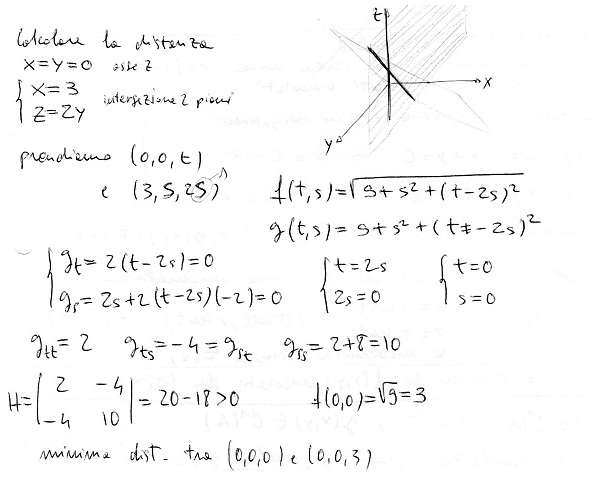 Calcolare la distanza
x=y=0 asse z
{ x=3
z=2y intersezione 2 piani
z
x
y
prendiamo (0,0,t)
e (3,s,2s)
f(t,s)=√9+s²+(t-2s)²
g(t,s)=9+s²+(t-2s)²
{ g_t=2(t-2s)=0
g_s=2s+2(t-2s)(-2)=0
{ t=2s
2s=0
{ t=0
s=0
g_tt=2 g_ts=-4=g_st g_ss=2+8=10
H=| 2 -4
-4 10 |=20-18>0
f(0,0)=√9=3
minima dist. tra (0,0,0) e (0,0,3)